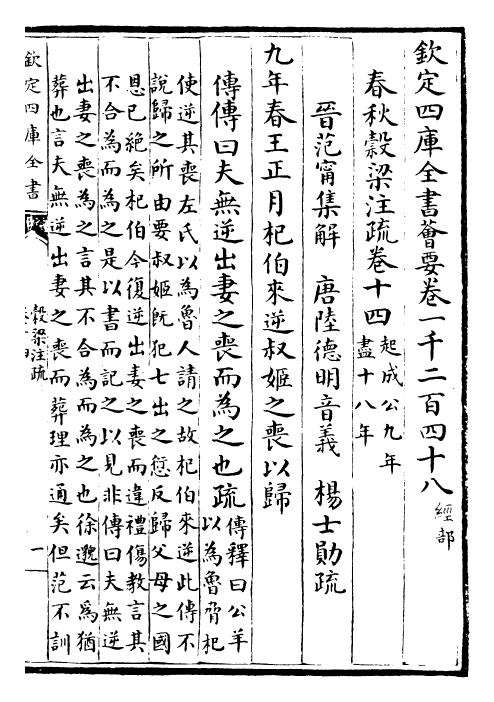 欽定四庫全書薈要卷一千二百四十八 經部
春秋穀梁注疏卷十四 起成公九年盡十八年
晉范甯集解 唐陸德明音義 楊士勛疏
九年春王正月杞伯來逆叔姬之喪以歸
傳傳曰夫無逆出妻之喪而為之也疏 傳釋曰公羊以為魯脅杞
使逆其喪左氏以為魯人請之故杞伯來逆此傳不
說歸之所由要叔姬既犯七出之愆反歸父母之國
恩已絶矣杞伯今復逆出妻之喪而違禮傷教言其
不合為而為之是以書而記之以見非傳曰夫無逆
出妻之喪為之言其不合為而為之也徐邈云為猶
葬也言夫無逆出妻之喪而葬理亦通矣但范不訓
欽定四庫全書
穀梁注疏
卷十四
一